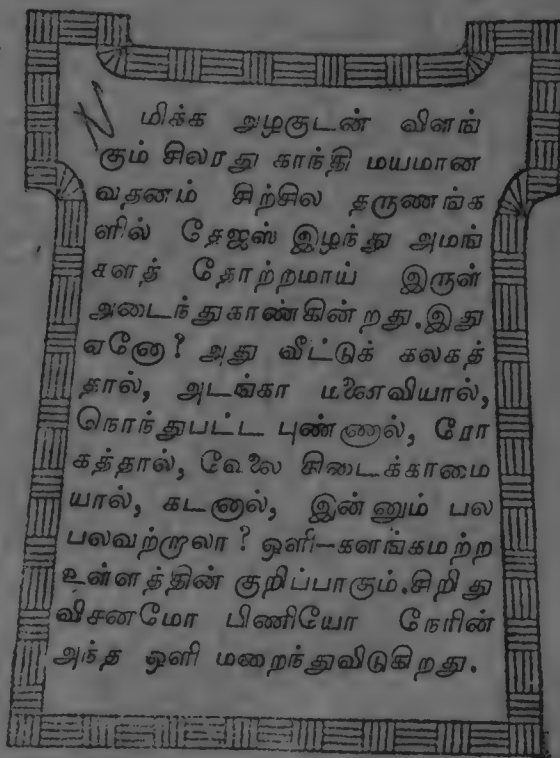 மிக்க அழகுடன் விளங்
கும் சிலரது காந்தி மயமான
வதனம் சிற்சில தருணங்க
ளில் தேஜஸ் இழந்து அமங்
களத் தோற்றமாய் இருள்
அடைந்துகாண்கின்றது. இது
ஏனோ? அது வீட்டுக் கலகத்
தால், அடங்கா மனைவியால்,
நொந்துபட்ட புண்ணால், ரோ
கத்தால், வேலை கிடைக்காமை
யால், கடனால், இன்னும் பல
பலவற்றாலா? ஒளி—களங்கமற்ற
உள்ளத்தின் குறிப்பாகும். சிறிது
விசனமோ பிணியோ நேரின்
அந்த ஒளி மறைந்துவிடுகிறது.